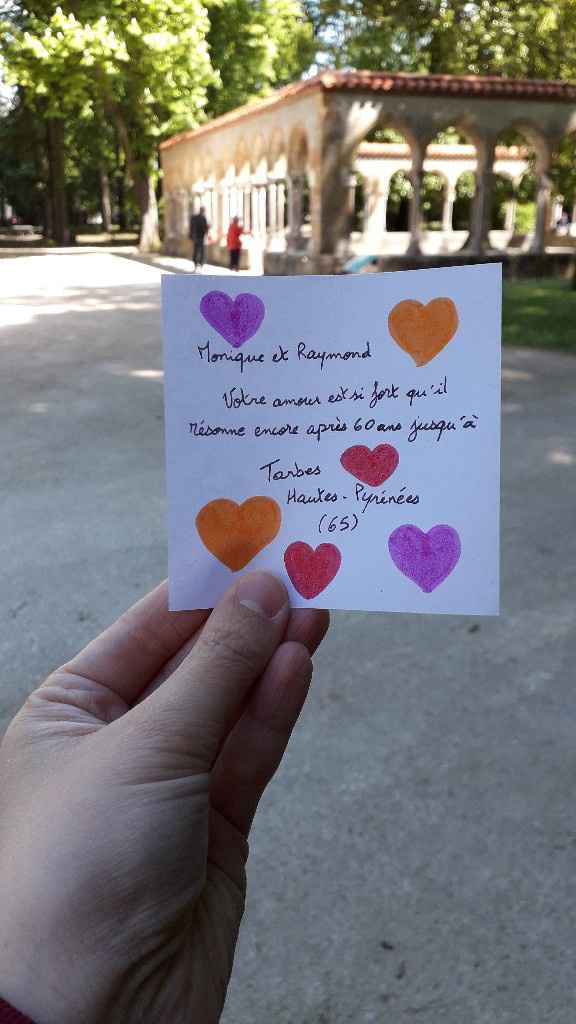 Monique et Raymond
Votre amour est si fort qu'il
résonne encore après 60 ans jusqu'à
Tarbes
Hautes-Pyrénées
(65)